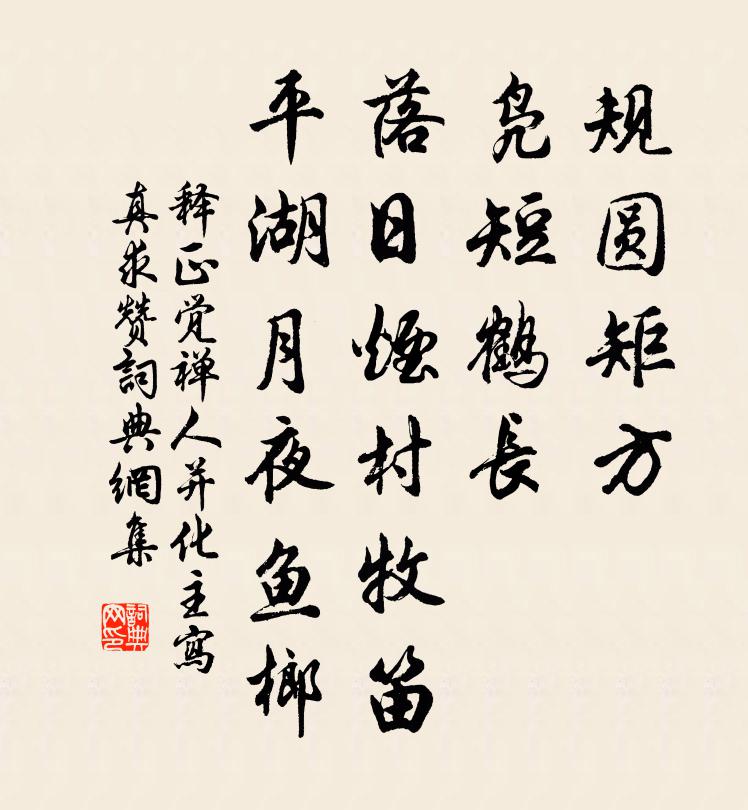 规圆矩方
凫短鹤長
落日煙村牧笛
平湖月夜鱼榔
释正觉禅人并化主寫
真求赞詞典網集
詞典网印